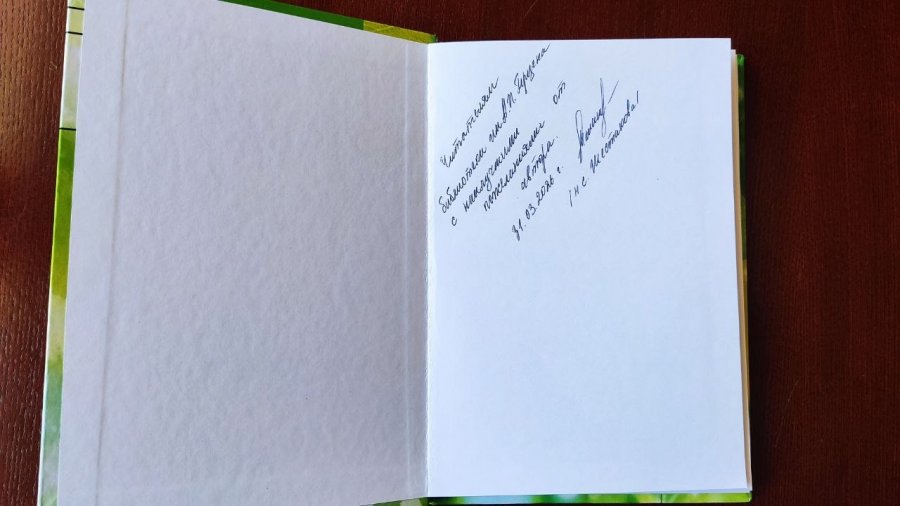 Читателям
библиотеки им. А.И. Герцена
с наилучшими
пожеланиями от
автора.
31.03.2026 г.
/Н.С. Шестакова/